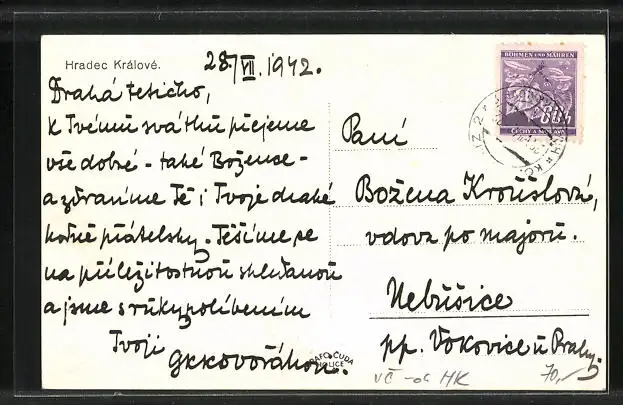 Hradec Králové.
28/VII. 1942.
Drahá tetičko,
k Tvému svátku přejeme
vše dobré - také Božence -
a zdravíme Tě i Tvoje drahé
hodně přátelsky. Těšíme se
na příležitostnou shledanou
a jsme s rukypolíbením
Tvoji
BÖHMEN UND MÄHREN
ČECHY A MORAVA
Paní
Božena Kroušlová,
vdova po majoru.
Nebušice
pp. Vokovice u Prahy
GRAFO ČUDA
HOLICE
VČ - oc HK
70,-